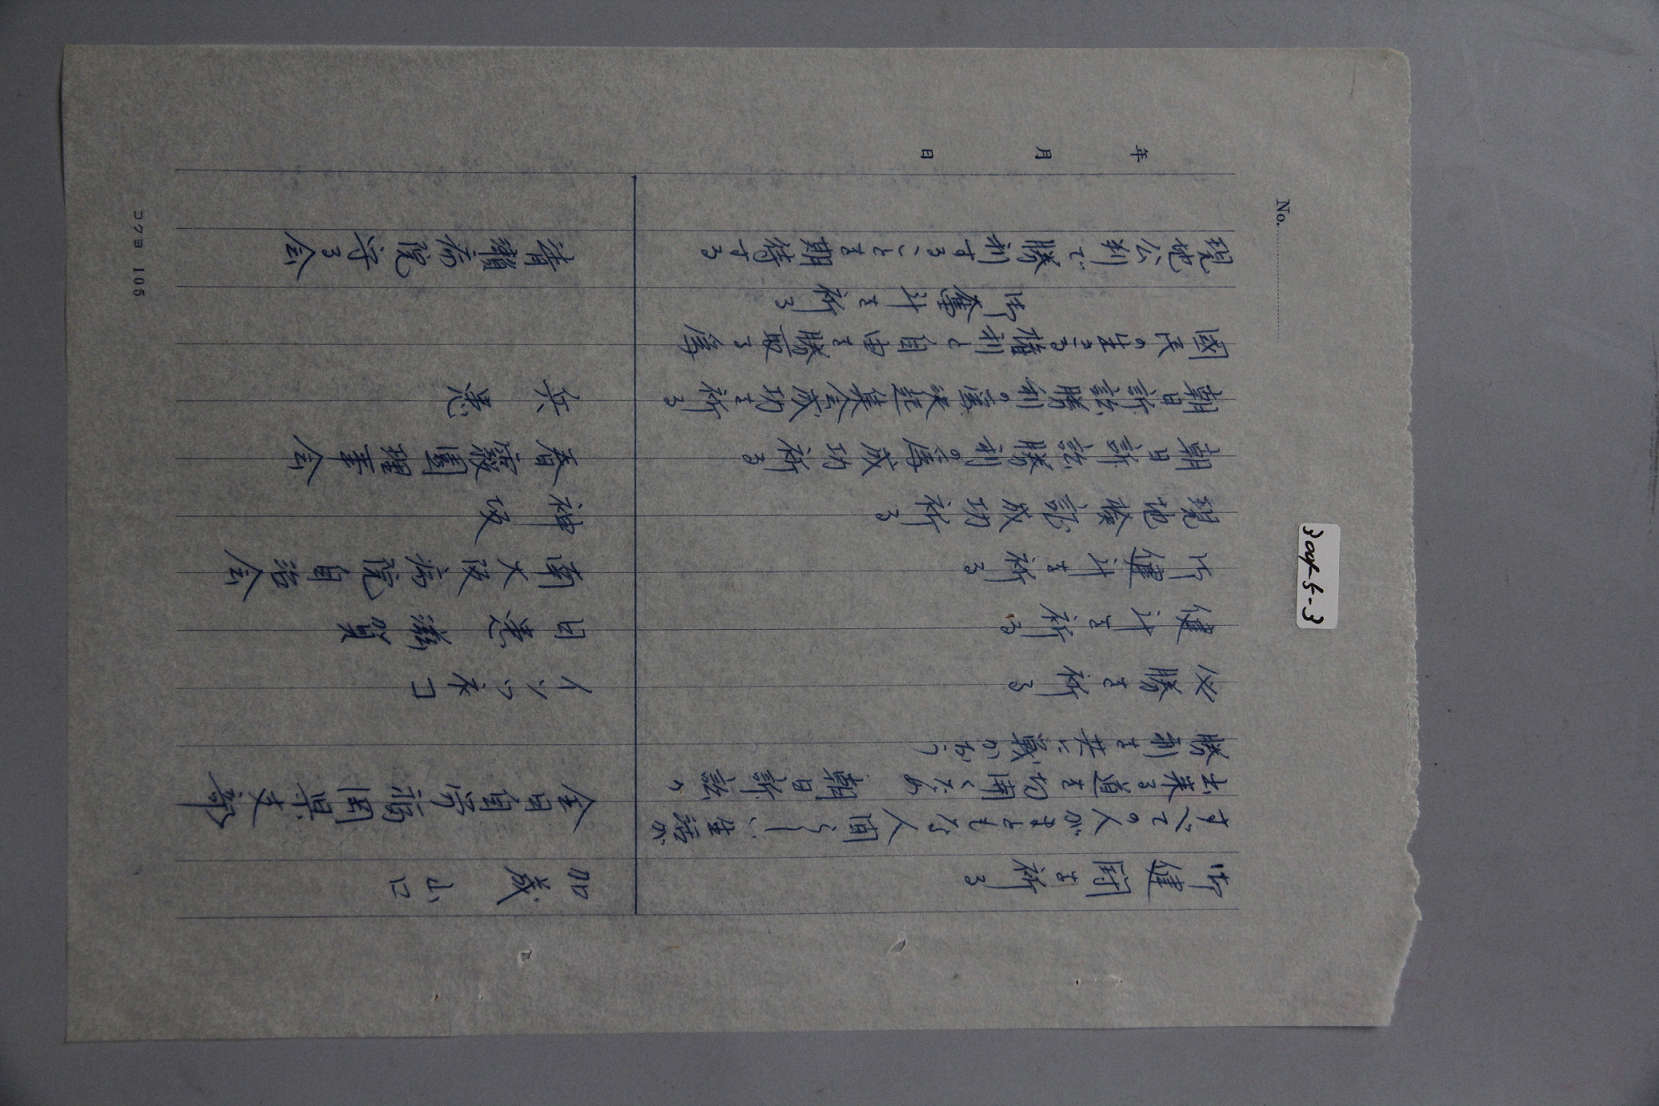 3004-5-3
No.
年 月 日
御健闘を祈る 加 山口
すべての人がまともな人間らしい生活が
出来る道を切開くため 朝日訴訟の
勝利を共に戦かおう 全日自労福岡県支部
必勝を祈る イツネコ
健斗を祈る 日患滋賀
御健斗を祈る 南大阪病院自治会
現地検証成功祈る 神阪
朝日訴訟勝利の為成功祈る 春霞園理事会
朝日訴訟勝利の 進集会成功を祈る 兵患
國民の生きる権利と自由を勝取る為
御奮斗を祈る
現地公判で勝利することを期待する 清瀬病院守る会
コクヨ 105